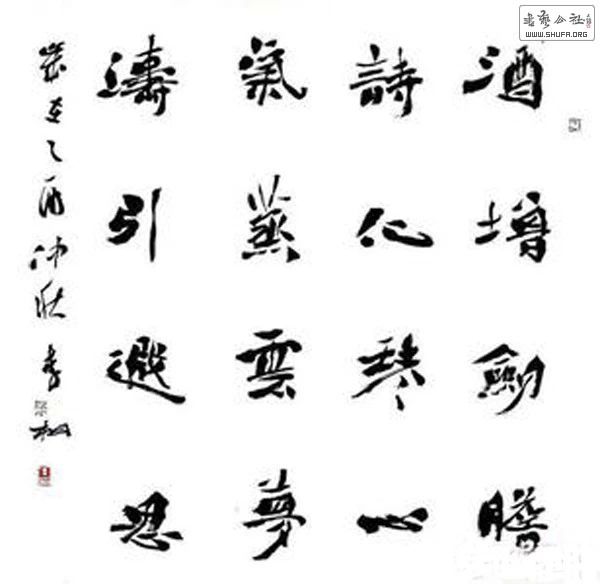 酒增劍膽
詩化琴心
氣蒸雲夢
濤引遐思
歲在乙酉仲秋李
書藝公社
WWW.SHUFA.ORG